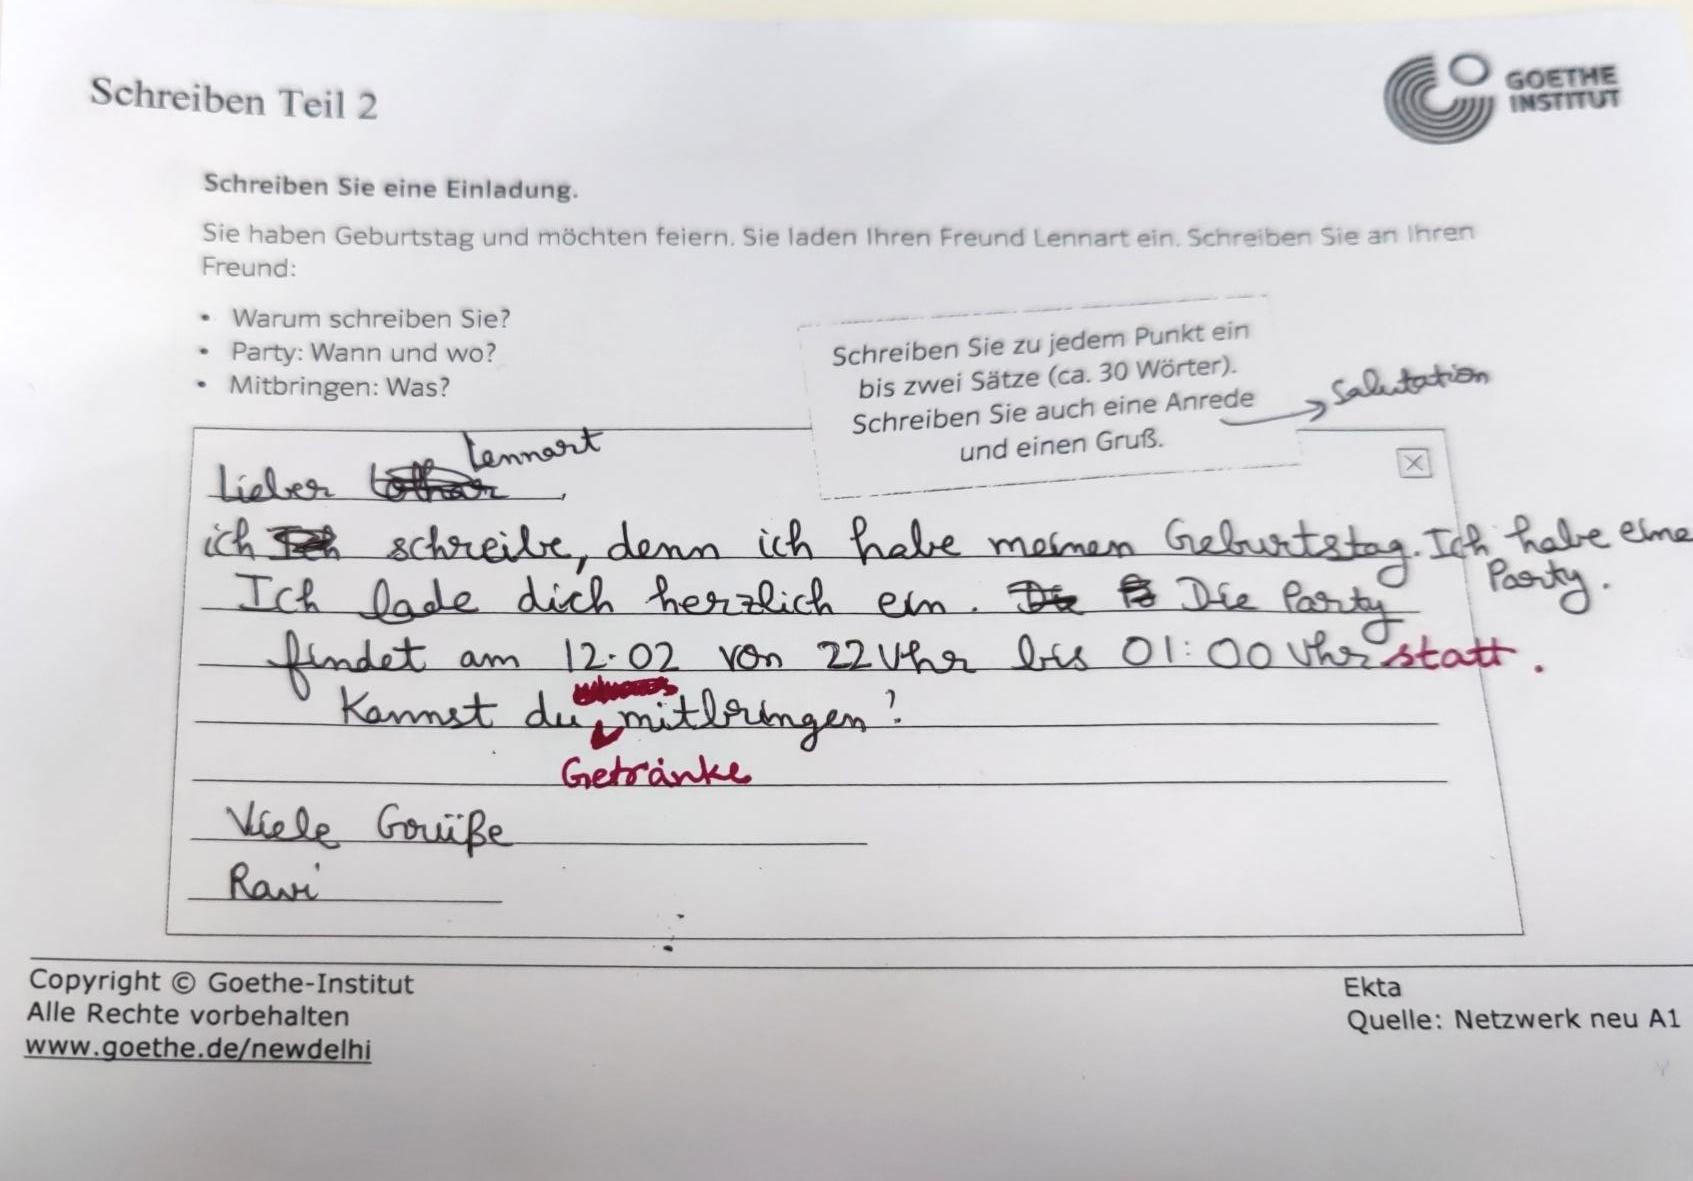 Schreiben Teil 2
GOETHE
INSTITUT
Schreiben Sie eine Einladung.
Sie haben Geburtstag und möchten feiern. Sie laden Ihren Freund Lennart ein. Schreiben Sie an Ihren
Freund:
• Warum schreiben Sie?
• Party: Wann und wo?
• Mitbringen: Was?
Schreiben Sie zu jedem Punkt ein
bis zwei Sätze (ca. 30 Wörter).
Schreiben Sie auch eine Anrede
und einen Gruß.
Salutation
Lennart
Lieber ,
ich schreibe, denn ich habe meinen Geburtstag. Ich habe eine
Party.
Ich lade dich herzlich ein. Die Party
findet am 12.02 von 22 Uhr bis 01:00 Uhr statt.
Kannst du mitbringen?
Getränke
Viele Grüße
Ravi
Copyright © Goethe-Institut
Alle Rechte vorbehalten
www.goethe.de/newdelhi
Ekta
Quelle: Netzwerk neu A1